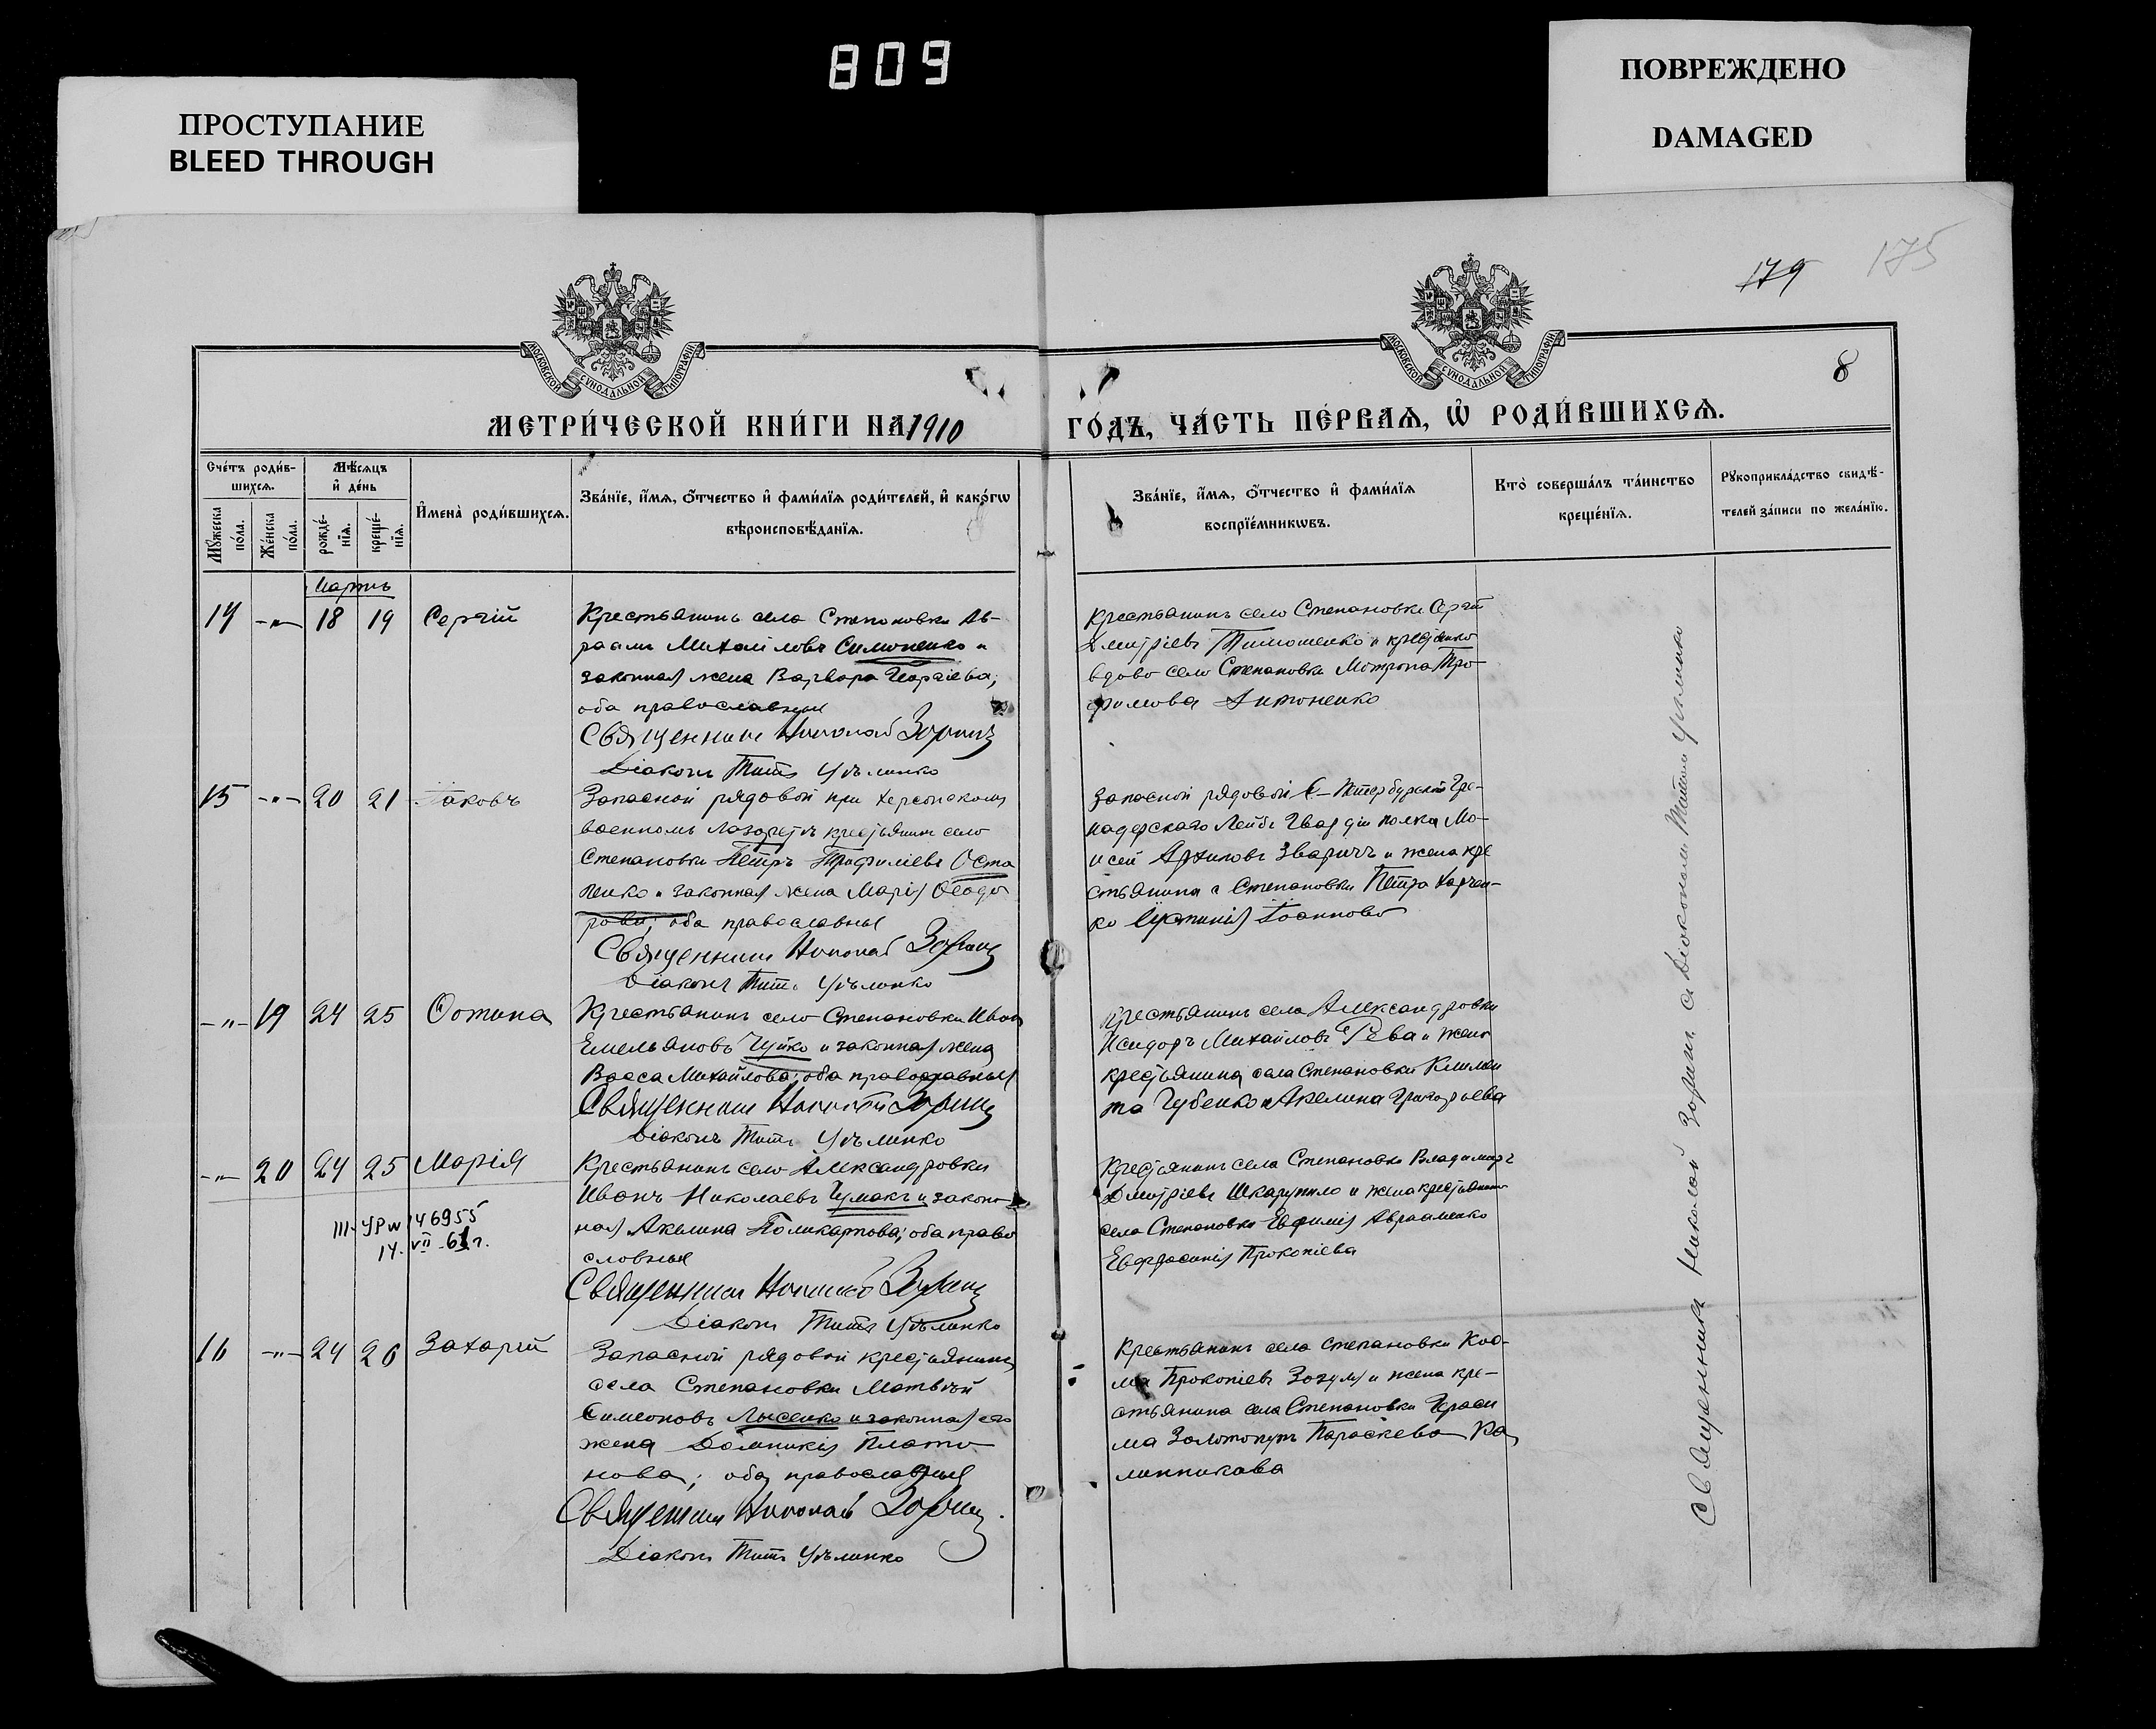 809
ПРОСТУПАНИЕ
BLEED THROUGH
ПОВРЕЖДЕНО
DAMAGED
179
175
8
МОСКОВСКОЙ СѴНОДАЛЬНОЙ ТИПОГРАФІИ
МОСКОВСКОЙ СѴНОДАЛЬНОЙ ТИПОГРАФІИ
МЕТРИ́ЧЕСКОЙ КНИ́ГИ НА 1910
ГО́ДЪ, ЧА́СТЬ ПЕ́РВАѦ, Ѡ҆ РОДИ́ВШИХСѦ.
Сче́тъ роди́в-
шихсѧ.
Мѣ́сѧцъ
и҆ де́нь
И҆мена̀ роди́вшихсѧ.
Зва́нїе, и҆́мѧ, ѻ҆́тчество и҆ фами́лїѧ роди́телей, и҆ како́гѡ
вѣроисповѣ́данїѧ.
Мꙋ́жеска
по́ла.
Же́нска
по́ла.
рожде́-
нїѧ.
креще́-
нїѧ.
Зва́нїе, и҆́мѧ, ѻ҆́тчество и҆ фами́лїѧ
воспрїе́мникѡвъ.
Кто̀ соверша́лъ та́инство
креще́нїѧ.
Рꙋкоприкла́дство свидѣ́-
телей за́писи по жела́нїю.
Мартъ
14 -"- 18 19 Сергій
Крестьянинъ села Степановки Ав-
раамъ Михаиловъ Симоненко и
законная жена Варвара Георгіева;
оба православные
Священникъ Николай Зоринъ
Діаконъ Титъ
Крестьянинъ села Степановки Сергій
Дмитріевъ Тимошенко и крестьянка
вдова села Степановки Мотрона Тро-
фимова Антоненко
15 -"- 20 21 Іаковъ
Запасной рядовой при Херсонскомъ
военномъ лазаретѣ крестьянинъ села
Степановки Петръ Трофиміевъ Оста
пенко и законная жена Марія Ѳеодо
рова; оба православные
Священникъ Николай Зоринъ
Діаконъ Титъ
Запасной рядовой С-Петербургскаго Гре-
надерскаго Лейбъ Гвардіи полка Мо-
исей Архиповъ Зваричъ и жена кре
стьянина с Степановки Петра Харчен-
ко Іустинія Іоаннова
-"- 19 24 25 Фотина
Крестьянинъ села Степановки Иванъ
Емельяновъ Чуйко и законная жена
Васса Михайлова; оба православные
Священникъ Николай Зоринъ
Діаконъ Титъ
Крестьянинъ села Александровки
Исидоръ Михайловъ Рева и жена
крестьянина села Степановки Климен
та Губенко Акелина Григорьева
-"- 20 24 25 Марія
Крестьянинъ села Александровки
Иванъ Николаевъ Чумакъ и закон-
ная Акилина Поликарпова; оба право
славные
Священникъ Николай Зоринъ
Діаконъ Титъ
III-УР № 146955
14.VII-61г.
Крестьянинъ села Степановки Владимиръ
Дмитріевъ Шкарупило и жена крестьянина
села Степановки Евфимія Авраменко
Евфросинія Прокопіева
16 -"- 24 26 Захарій
Запасной рядовой крестьянинъ
села Степановки Матвѣй
Симеоновъ Лысенко и законная его
жена Домникія Плато
нова; оба православные
Священникъ Николай Зоринъ
Діаконъ Титъ
Крестьянинъ села Степановки Кос-
ма Прокопіевъ Зозуля и жена кре-
стьянина села Степановки Гераси
ма Золотопупъ Параскева Ка
линникова
Священникъ Николай Зоринъ съ діакономъ Титомъ